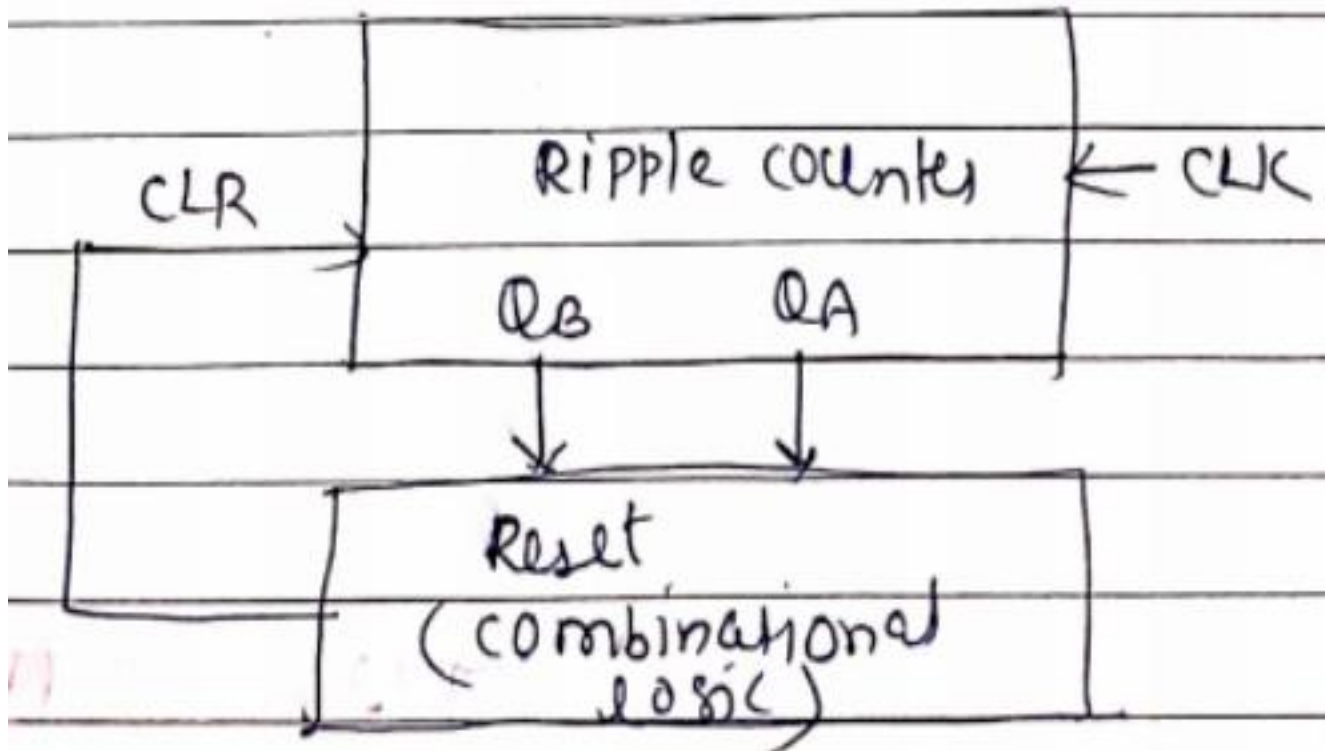 Ripple counter
CLK
CLR
QB
QA
Reset
(combinational
logic)